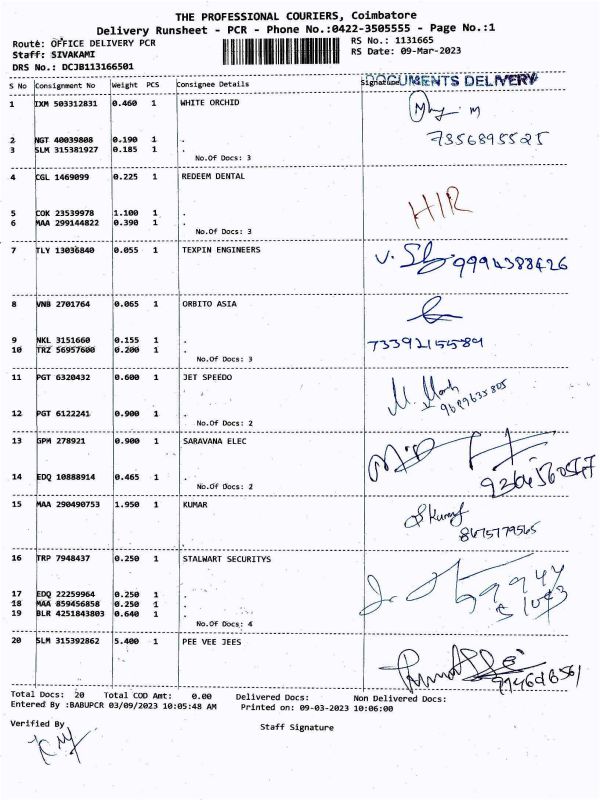 THE PROFESSIONAL COURIERS, Coimbatore
Delivery Runsheet - PCR - Phone No.:0422-3505555 - Page No.:1
Route: OFFICE DELIVERY PCR RS No.: 1131665
Staff: SIVAKAMI RS Date: 09-Mar-2023
DRS No.: DCJB113166501
S No Consignment No Weight PCS Consignee Details Signature DOCUMENTS DELIVERY
1 IXM 503312831 0.460 1 WHITE ORCHID
7356895525
2 NGT 40039808 0.190 1 .
3 SLM 315381927 0.185 1 .
No.Of Docs: 3
4 CGL 1469099 0.225 1 REDEEM DENTAL
HIR
5 COK 23539978 1.100 1 .
6 MAA 299144822 0.390 1 .
No.Of Docs: 3
7 TLY 13036840 0.055 1 TEXPIN ENGINEERS
9994388426
8 VNB 2701764 0.065 1 ORBITO ASIA
9 NKL 3151660 0.155 1 .
10 TRZ 56957600 0.200 1 .
7339215589
No.Of Docs: 3
11 PGT 6320432 0.600 1 JET SPEEDO
12 PGT 6122241 0.900 1 .
No.Of Docs: 2
13 GPM 278921 0.900 1 SARAVANA ELEC
14 EDQ 10888914 0.465 1 .
No.Of Docs: 2
15 MAA 290490753 1.950 1 KUMAR
8675779565
16 TRP 7948437 0.250 1 STALWART SECURITYS
17 EDQ 22259964 0.250 1 .
18 MAA 859456858 0.250 1 .
19 BLR 4251843803 0.640 1 .
No.Of Docs: 4
20 SLM 315392862 5.400 1 PEE VEE JEES
Total Docs: 20 Total COD Amt: 0.00 Delivered Docs: Non Delivered Docs:
Entered By :BABUPCR 03/09/2023 10:05:48 AM Printed on: 09-03-2023 10:06:00
Verified By
Staff Signature